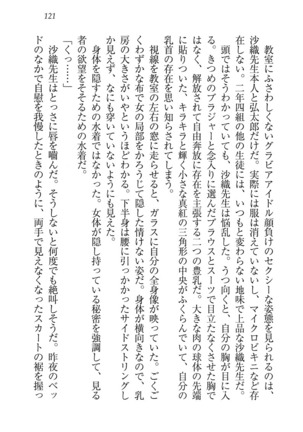 121
きにおさわしくないグラビアアイドル顔負けのセクシーな姿態を見られるのは、
沙織先生本人と弘太郎だけだ。実際には服は消えていないし、マイクロビキニなど存
在しない。二年四組の他の生徒には、いつもと変わらない地味で上品な沙織先生だ。
頭ではそうわかっていても、沙織先生は悩乱した。うつ向くと、自分の胸が目に入
る。きつめのブラジャーと念入りに選んだブラウスとスーツで目立たなくさせた胸で
はなく、解放されて自由奔放に存在を主張する二つの豊乳だ。大きな肉の球体の先端
に貼りついた、キラキラと輝く小さな真紅の三角形の中央がふくらんでいて、自分の
乳首の存在を示している。
視線を教室の左右の窓に走らせると、ガラスに自分の全身像が映っていた。ごくご
くわずかな布で女の局部をかろうじて隠した情けない姿だ。身体が横向きなので、乳
房の大きさがいやというほどわかる。下半身は腰にがっかったサイドストリングし
か見えず、なにも穿いていないかのようにも見える。
身体を隠すための水着ではなかった。女体が隠し持っている秘密を強調して、見る
者の欲望をそそるための水着だ。
「くっ……」
沙織先生はとっさに唇を嚙んだ。そうしないと何度でも絶叫しそうだ。昨夜のベッ
ドのなかで自慰を我慢したときのように、両手で見えなくなったスカートの裾を握っ